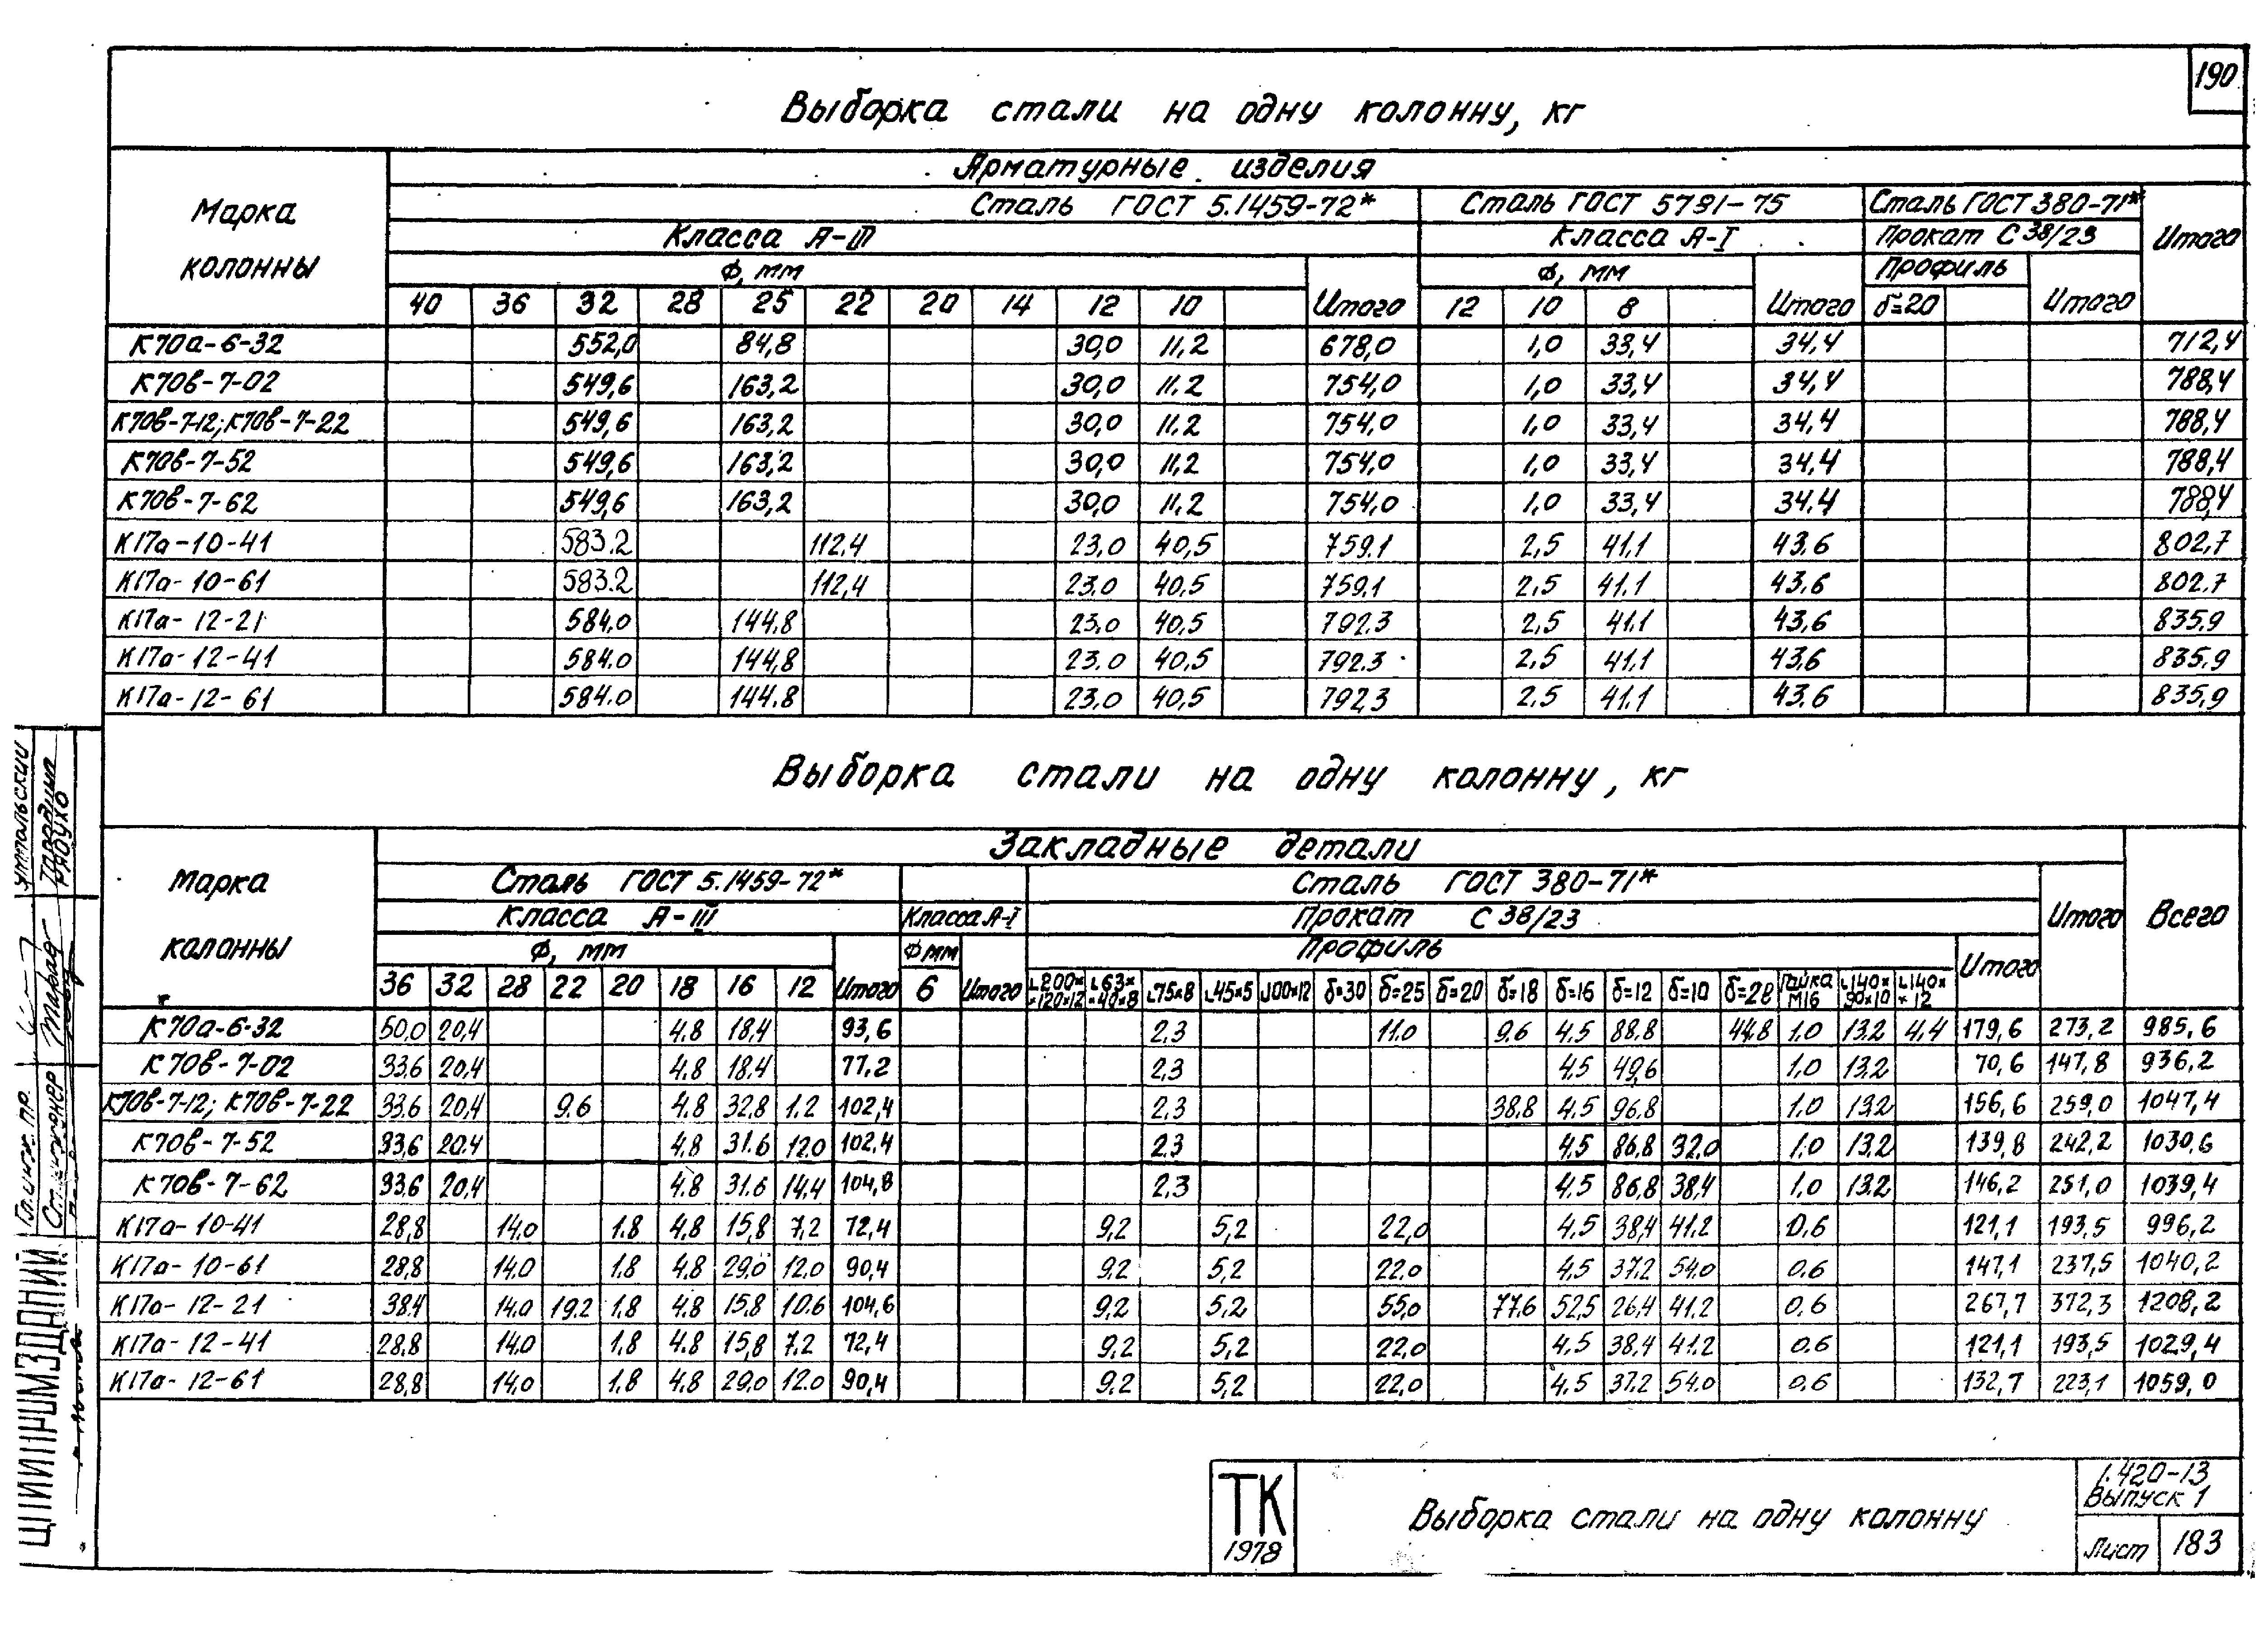 190
Выборка стали на одну колонну, кг
Марка колонны
Арматурные изделия
Сталь ГОСТ 5.1459-72* Сталь ГОСТ 5781-75 Сталь ГОСТ 380-71* Итого
Класса А-III Класса А-I Прокат С 38/23
Ф, мм Итого Ф, мм Итого Профиль Итого
40 36 32 28 25 22 20 14 12 10 12 10 8 δ=20
К70а-6-32 552,0 84,8 30,0 11,2 678,0 1,0 33,4 34,4 712,4
К70в-7-02 549,6 163,2 30,0 11,2 754,0 1,0 33,4 34,4 788,4
К70в-7-12; К70в-7-22 549,6 163,2 30,0 11,2 754,0 1,0 33,4 34,4 788,4
К70в-7-52 549,6 163,2 30,0 11,2 754,0 1,0 33,4 34,4 788,4
К70в-7-62 549,6 163,2 30,0 11,2 754,0 1,0 33,4 34,4 788,4
К17а-10-41 583.2 112,4 23,0 40,5 759.1 2,5 41.1 43.6 802,7
К17а-10-61 583.2 112,4 23.0 40,5 759.1 2,5 41.1 43.6 802.7
К17а-12-21 584.0 144.8 23.0 40,5 792.3 2,5 41.1 43,6 835,9
К17а-12-41 584.0 144,8 23.0 40,5 792.3 2,5 41.1 43,6 835.9
К17а-12-61 584.0 144.8 23.0 40,5 792,3 2,5 41.1 43.6 835,9
Выборка стали на одну колонну, кг
Марка колонны
Закладные детали
Сталь ГОСТ 5.1459-72* Сталь ГОСТ 380-71* Итого Всего
Класса А-III Класса А-I Прокат С 38/23
Ф, мм Итого Ф мм Итого Профиль Итого
36 32 28 22 20 18 16 12 6 ∟200××120×12 ∟63××40×8 ∟75×8 ∟45×5 ∟100×12 δ=30 δ=25 δ=20 δ=18 δ=16 δ=12 δ=10 δ=28 Гайка М16 ∟140×90×10 ∟140××12
К70а-6-32 50,0 20,4 4.8 18,4 93,6 2.3 11.0 9.6 4,5 88.8 44,8 1.0 13.2 4,4 179,6 273,2 985,6
К70в-7-02 33.6 20,4 4.8 18.4 77,2 2,3 4,5 49,6 1,0 13.2 70,6 147,8 936,2
К70в-7-12; К70в-7-22 33.6 20,4 9.6 4.8 32,8 1.2 102,4 2.3 38.8 4,5 96,8 1.0 13.2 156,6 259,0 1047,4
К70в-7-52 33,6 20.4 4.8 31.6 12.0 102,4 2.3 4,5 86,8 32.0 1.0 13.2 139,8 242,2 1030,6
К70в-7-62 33.6 20,4 4.8 31.6 14.4 104,8 2.3 4.5 86,8 38,4 1.0 13.2 146,2 251,0 1039,4
К17а-10-41 28,8 14.0 1.8 4,8 15,8 7,2 72,4 9,2 5,2 22,0 4,5 38,4 41.2 0.6 121,1 193,5 996,2
К17а-10-61 28,8 14.0 1.8 4,8 29,0 12.0 90,4 9.2 5,2 22.0 4,5 37.2 54.0 0.6 147,1 237,5 1040,2
К17а-12-21 38.4 14.0 19.2 1.8 4.8 15.8 10.6 104,6 9,2 5,2 55,0 77.6 52,5 26,4 41,2 0.6 267,7 372,3 1208,2
К17а-12-41 28,8 14.0 1.8 4.8 15,8 7,2 72,4 9,2 5,2 22,0 4,5 38,4 41.2 0.6 121,1 193,5 1029,4
К17а-12-61 28,8 14,0 1.8 4.8 29,0 12.0 90,4 9.2 5,2 22,0 4,5 37.2 54.0 0.6 132,7 223,1 1059,0
ТК
1978
Выборка стали на одну колонну
1.420-13
Выпуск 1
Лист 183
ЦНИИПРОМЗДАНИЙ
Гл. инж. пр.
Ст. инженер